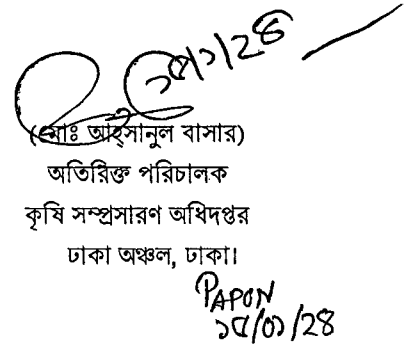 ১৫/১/২৪
(মোঃ আহ্সানুল বাসার)
অতিরিক্ত পরিচালক
কৃষি সম্প্রসারণ অধিদপ্তর
ঢাকা অঞ্চল, ঢাকা।
PAPON
১৫/০১/২৪